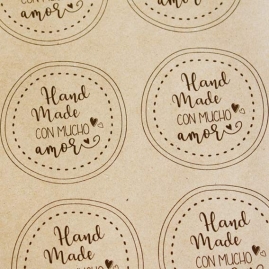 amor
amor
Hand
Made
CON MUCHO
amor
Hand
Made
CON MUCHO
amor
Hand
Made
CON MUCHO
amor
Hand
Made
CON MUCHO